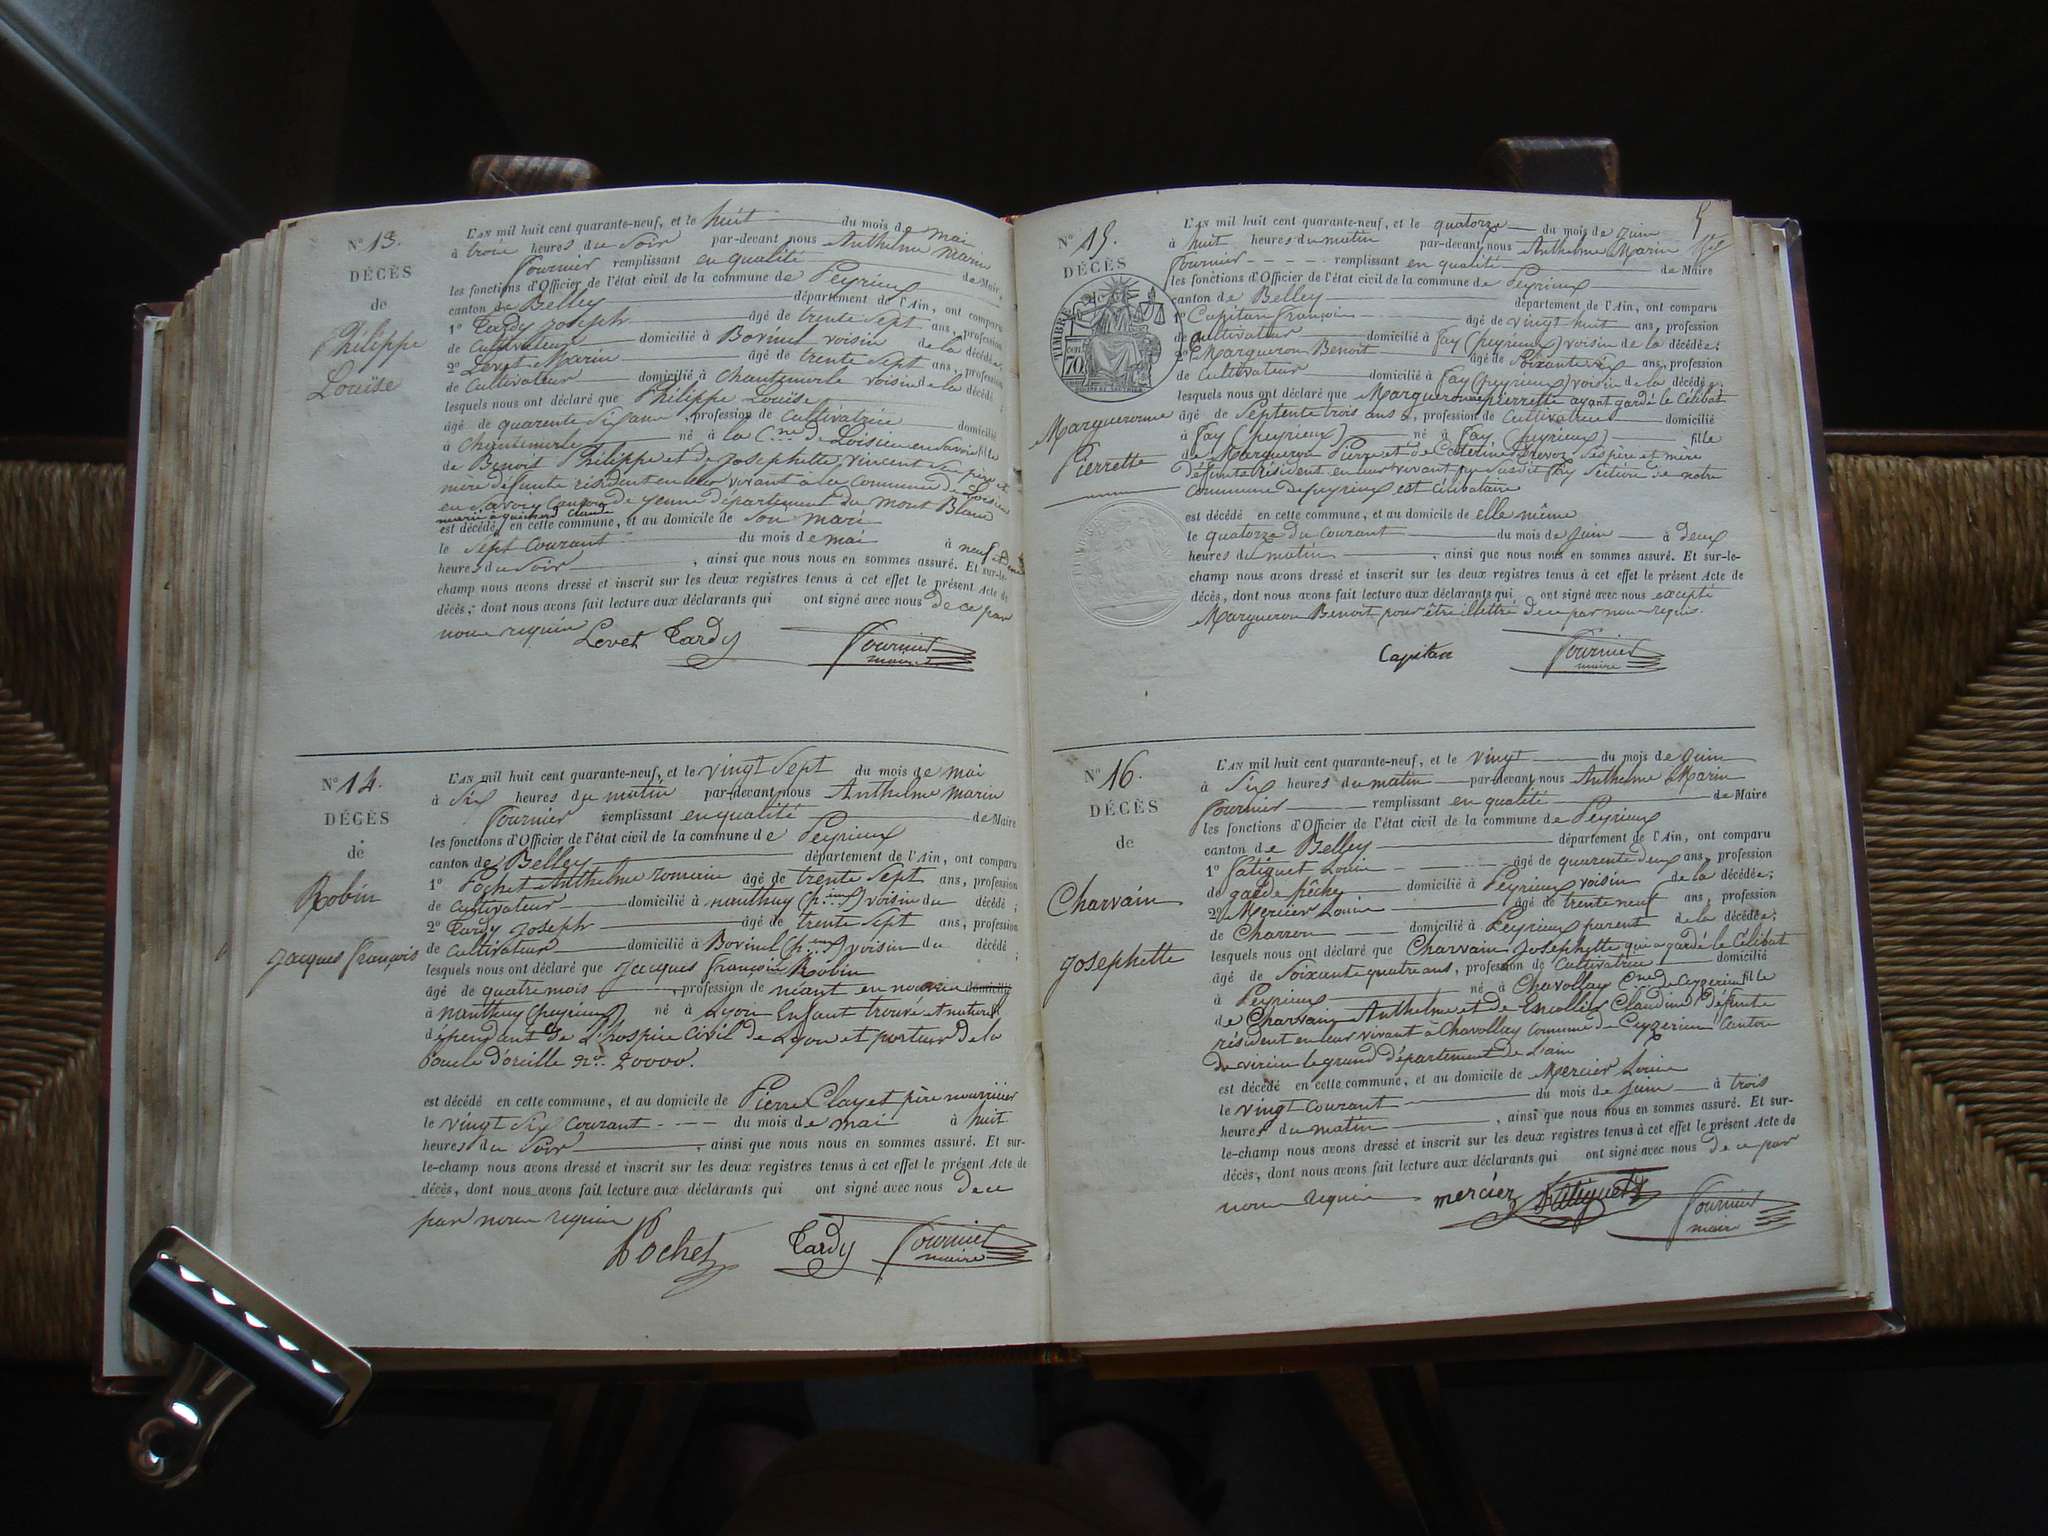 N° 13.
DÉCÈS
de
Philippe
Louïse
L'AN mil huit cent quarante-neuf, et le huit du mois de mai
à trois heures du soir par-devant nous Anthelme Marin
Fournier remplissant en qualité de Maire
les fonctions d'Officier de l'état civil de la commune de Peyrieux
canton de Belley département de l'Ain, ont comparu
1° Tardy Joseph âgé de trente sept ans, profession
de Cultivateur domicilié à Bovinel voisin de la décédée;
2° Levet Marin âgé de trente sept ans, profession
de Cultivateur domicilié à Chantemerle voisin de la décédé ;
lesquels nous ont déclaré que Philippe Louïse
âgé de quarente six ans, profession de Cultivatrice domicilié
à Chantemerle né à la C.ne de Loisieu en Savoie fille
de Benoit Philippe et de Josephette Vincent ses père et
mère défunte résident en leur vivant à la Commune de Loisieu
en Savoi Canton de yenne département du Mont Blanc
est décédé en cette commune, et au domicile de son mari
le sept courant du mois de mai à neuf
heures du soir, ainsi que nous nous en sommes assuré. Et sur-le-
champ nous avons dressé et inscrit sur les deux registres tenus à cet effet le présent Acte de
décès; dont nous avons fait lecture aux déclarants qui ont signé avec nous de ce par
nous requin Levet Tardy Fournier
maire
N° 14.
DÉCÈS
de
Robin
Jacques françois
L'AN mil huit cent quarante-neuf, et le vingt sept du mois de mai
à six heures du matin par-devant nous Anthelme Marin
Fournier remplissant en qualité de Maire
les fonctions d'Officier de l'état civil de la commune de Peyrieux
canton de Belley département de l'Ain, ont comparu
1° Pochet Anthelme romain âgé de trente sept ans, profession
de Cultivateur domicilié à nanthuy voisin du décédé ;
2° Tardy Joseph âgé de trente sept ans, profession
de Cultivateur domicilié à Bovinel voisin du décédé ;
lesquels nous ont déclaré que Jacques françois Robin
âgé de quatre mois, profession de néant en nourice domicilié
à nanthuy (peyrieux) né à Lyon Enfant trouvé et naturel
dépendant de L'hospice Civil de Lyon et porteur de la
boucle d'oreille N°. 20000.
est décédé en cette commune, et au domicile de Pierre Clayet père nourricier
le vingt six courant du mois de mai à huit
heures du soir, ainsi que nous nous en sommes assuré. Et sur-
le-champ nous avons dressé et inscrit sur les deux registres tenus à cet effet le présent Acte de
décès, dont nous avons fait lecture aux déclarants qui ont signé avec nous de ce
par nous requin
Pochet Tardy Fournier
maire
5
N° 15.
DÉCÈS
TIMBRE
70
Margueronne
Pierrette
L'AN mil huit cent quarante-neuf, et le quatorze du mois de Juin
à huit heures du matin par-devant nous Anthelme Marin
Fournier remplissant en qualité de Maire
les fonctions d'Officier de l'état civil de la commune de Peyrieux
canton de Belley département de l'Ain, ont comparu
1° Capitan françois âgé de vingt huit ans, profession
de Cultivateur domicilié à Fay (peyrieux) voisin de la décédée;
2° Margueron Benoit âgé de soixante six ans, profession
de Cultivateur domicilié à Fay (peyrieux) voisin de la décédée;
lesquels nous ont déclaré que Margueronne pierrette ayant gardé le Célibat
âgé de Septente trois ans, profession de Cultivatrice domicilié
à Fay (peyrieux) né à Fay (peyrieux) fille
de Margueron Pierre et de Catérine Prevoz ses père et mère
défunte résident en leur vivant au susdit Fay Section de notre
Commune de peyrieux est célibataire
est décédé en cette commune, et au domicile de elle même
le quatorze du courant du mois de Juin à deux
heures du matin, ainsi que nous nous en sommes assuré. Et sur-le-
champ nous avons dressé et inscrit sur les deux registres tenus à cet effet le présent Acte de
décès, dont nous avons fait lecture aux déclarants qui ont signé avec nous excepté
Margueron Benoit pour être illettré de ce par nous requis.
Capitan Fournier
maire
N° 16.
DÉCÈS
de
Charvain
Josephette
L'AN mil huit cent quarante-neuf, et le vingt du mois de Juin
à six heures du matin par-devant nous Anthelme Marin
Fournier remplissant en qualité de Maire
les fonctions d'Officier de l'état civil de la commune de Peyrieux
canton de Belley département de l'Ain, ont comparu
1° Fatiguet Louis âgé de quarente deux ans, profession
de garde pêche domicilié à Peyrieux voisin de la décédée;
2° Mercier Louis âgé de trente neuf ans, profession
de Charron domicilié à Peyrieux parent de la décédée;
lesquels nous ont déclaré que Charvain Josephette qui a gardé le Célibat
âgé de soixante quatre ans, profession de Cultivatrice domicilié
à Peyrieux né à Chavollay C.ne de Ceyzerieu fille
de Charvain Anthelme et de Encollis Claudine défunte
résident en leur vivant à Chavollay Commune de Ceyzerieu Canton
de virieu le grand département de L'ain
est décédé en cette commune, et au domicile de Mercier Louis
le vingt courant du mois de Juin à trois
heures du matin, ainsi que nous nous en sommes assuré. Et sur-
le-champ nous avons dressé et inscrit sur les deux registres tenus à cet effet le présent Acte de
décès, dont nous avons fait lecture aux déclarants qui ont signé avec nous de ce par
nous requin mercier Fatiguet Fournier
maire